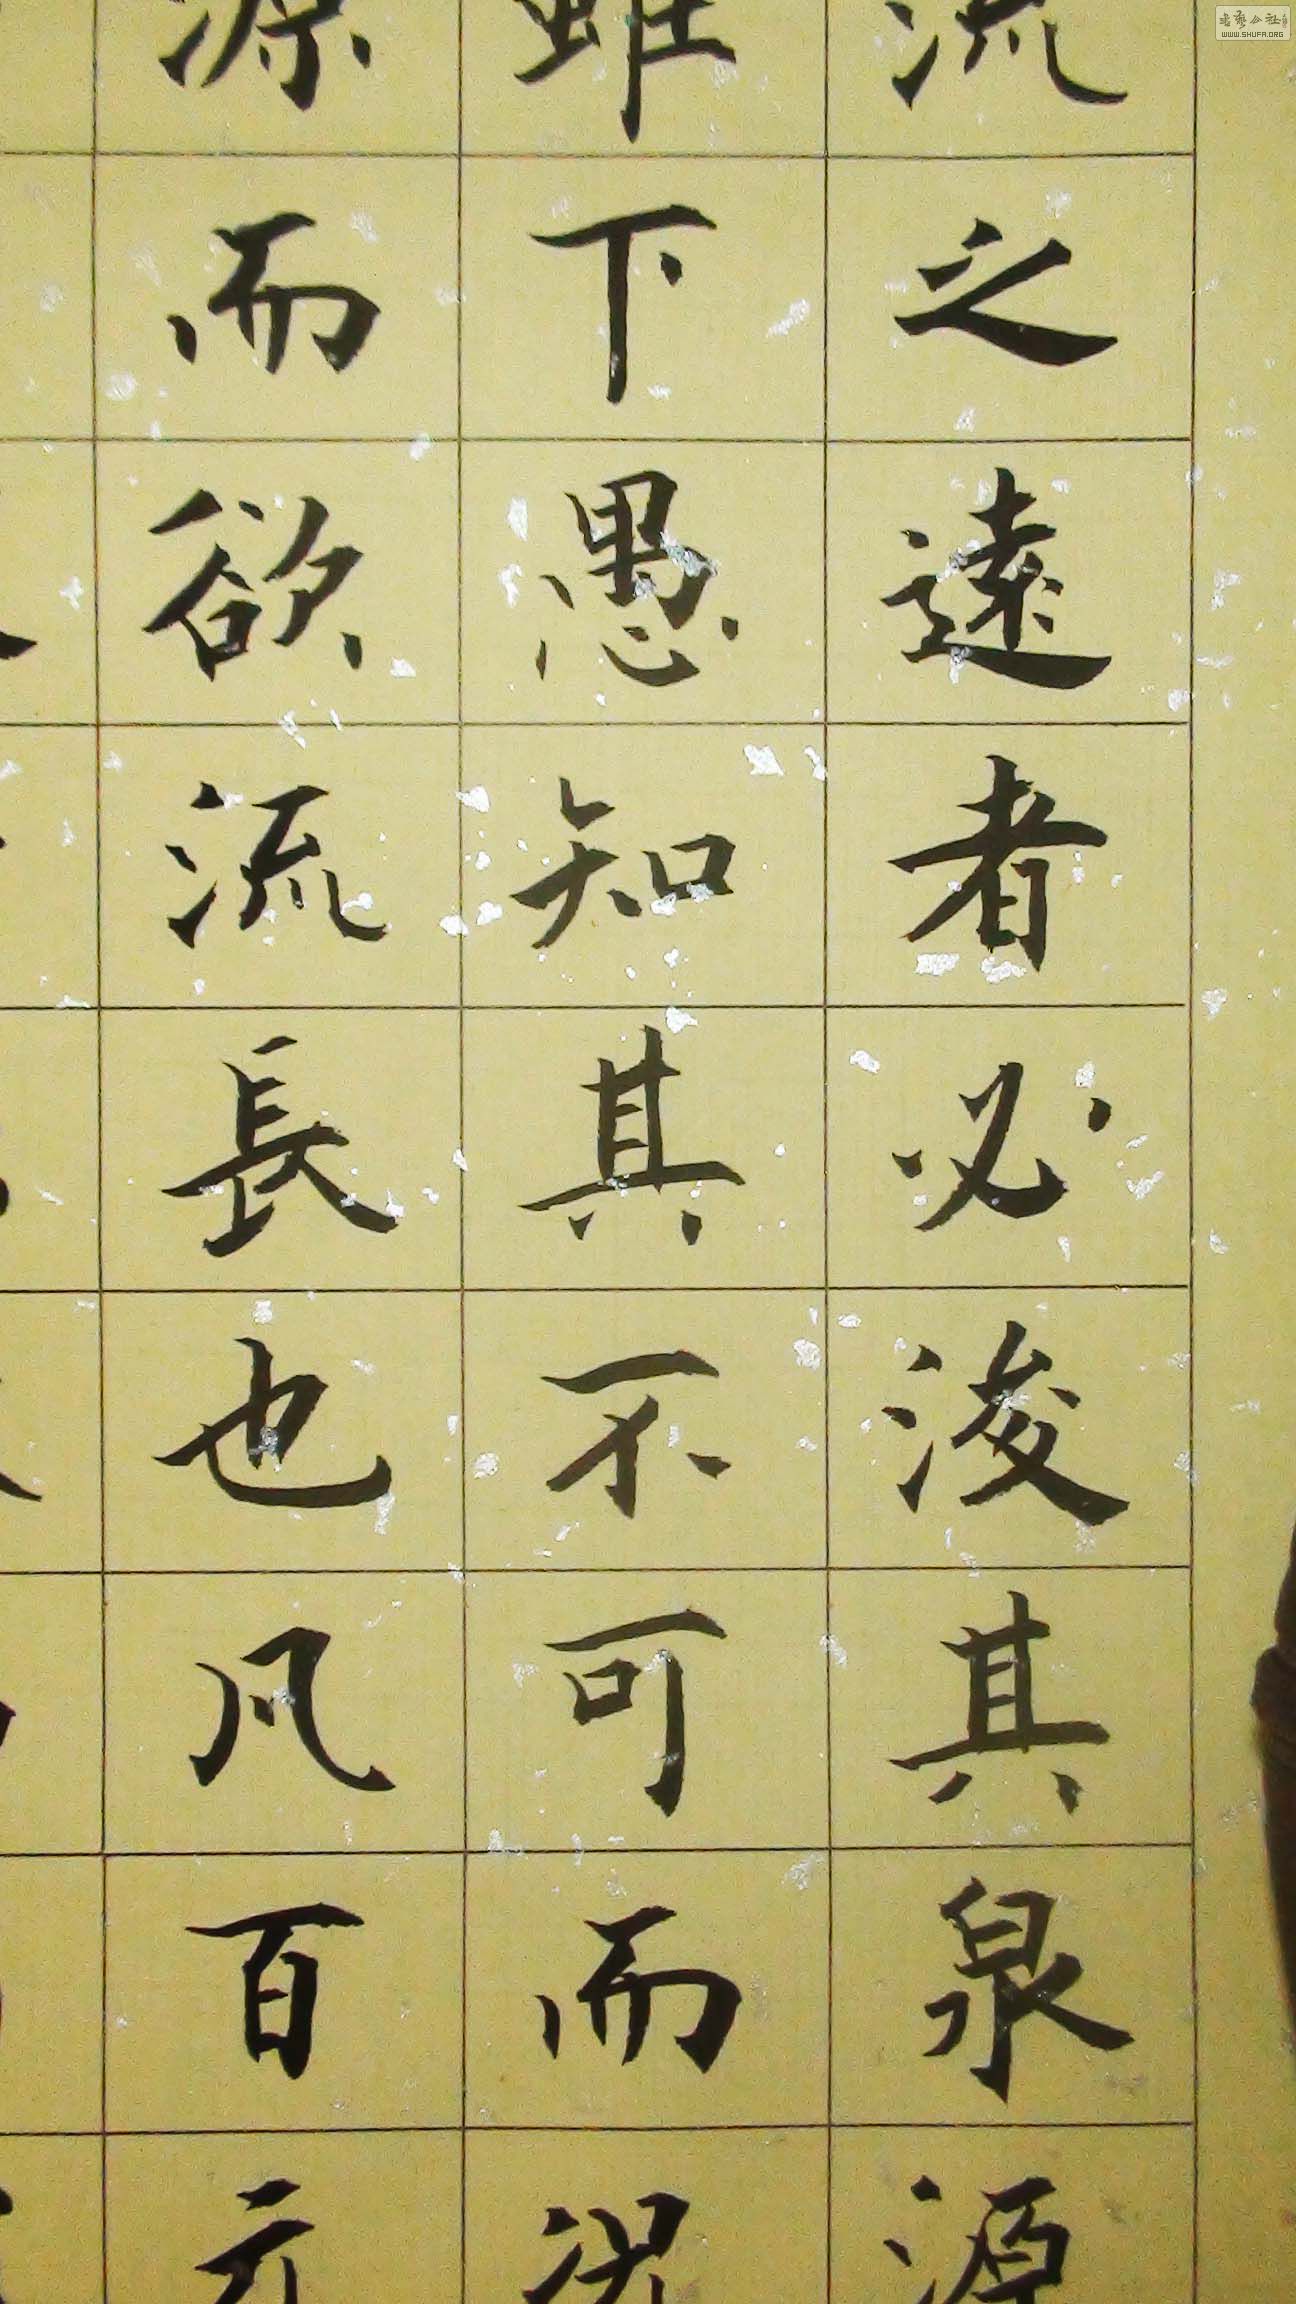 流之遠者必浚其泉源
雖下愚知其不可而況
源而欲流長也凡百元
書藝公社
WWW.SHUFA.ORG